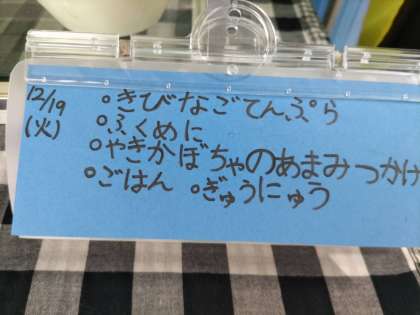 12/19
(火)
°きびなごてんぷら
°ふくめに
°やきかぼちゃのあまみつかけ
°ごはん °ぎゅうにゅう